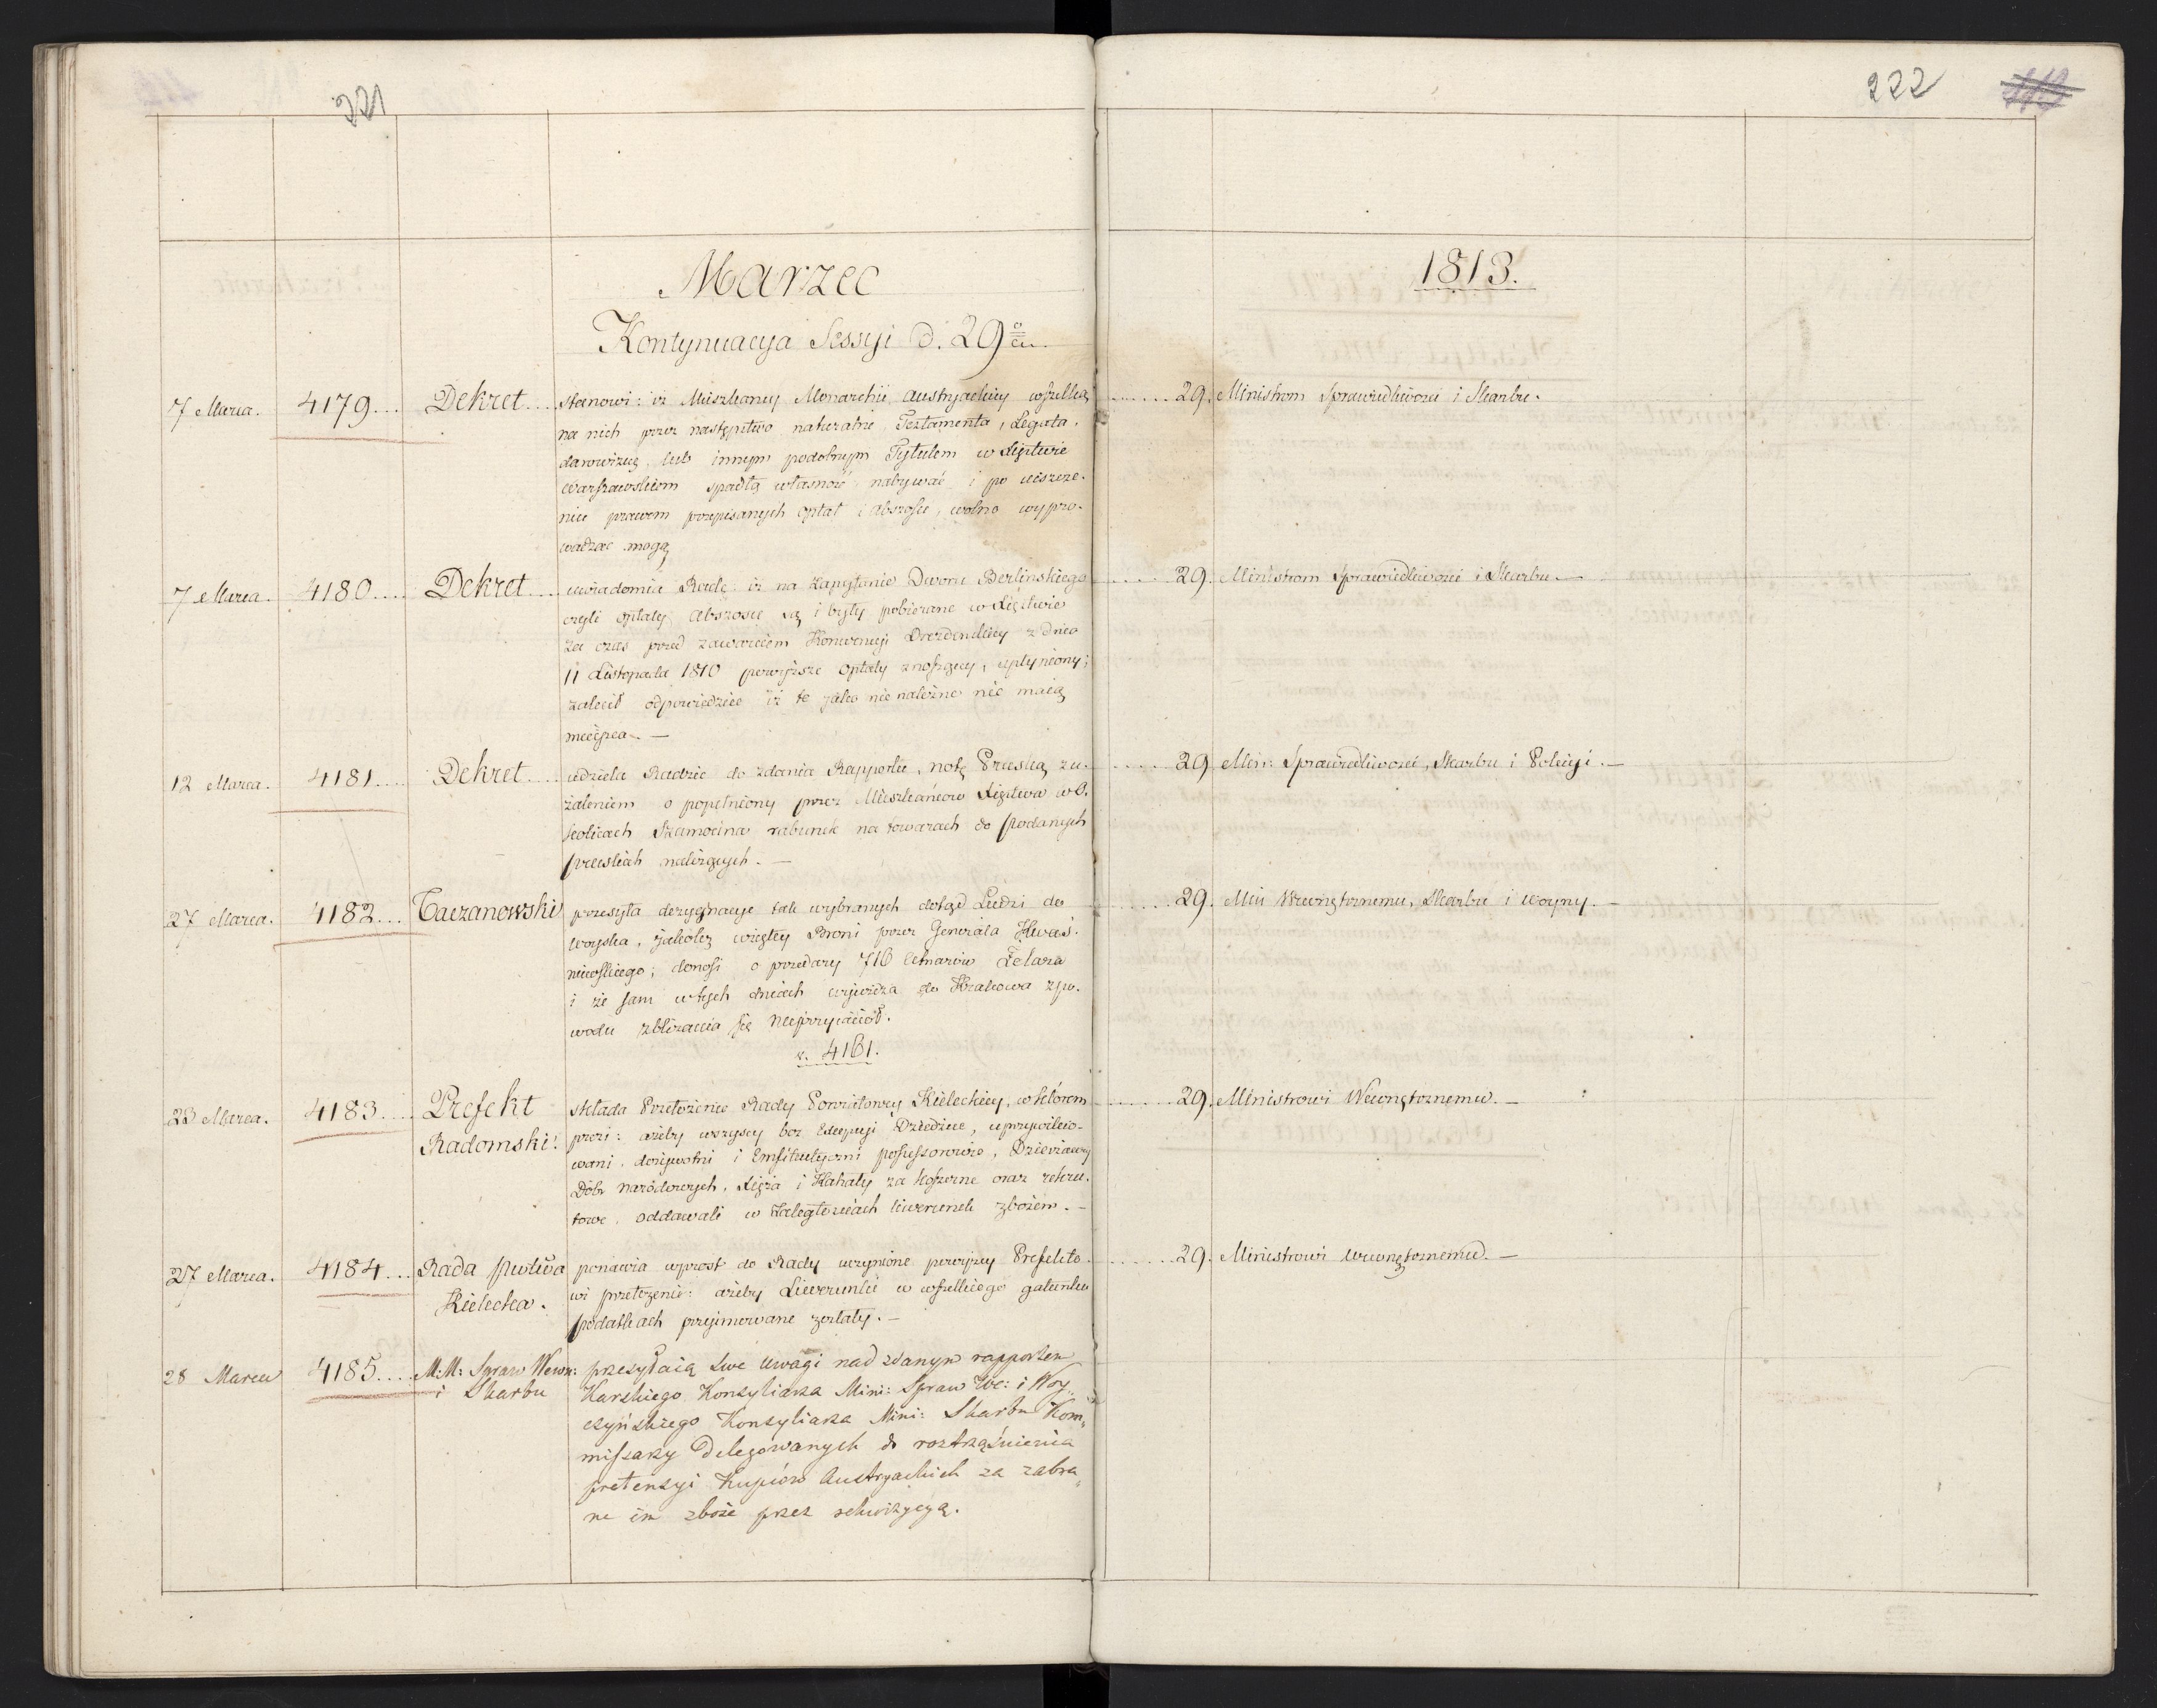 221
222
Marzec
1813.
Kontynuacya Sessyi d. 29
7 Marca. 4179... Dekret.... stanowi: iż Mieszkancy Monarchii Austryackiey wszelką ...... 29. Ministrom Sprawiedliwości i Skarbu.
na nich przez następstwo naturalne, Testamenta, Legata,
darowiznę, lub innym podobnym Tytułem w Xięstwie
Warszawskiem spadłą własność nabywać i po uiszcze-
niu prawem przepisanych opłat i abszosu, wolno wypro-
wadzać mogą
7 Marca. 4180.... Dekret.... uwiadomia Radę iż na zapytanie Dworu Berlinskiego ..... 29. Ministrom Sprawiedliwości i Skarbu.—
czyli opłaty abszosu są i były pobierane w Xięstwie
za czas przed zawarciem Konwencyi Drezdeńskiey z dnia
11 Listopada 1810 powyższe opłaty znoszącey, upłyniony;
zalecił odpowiedzieć iż te jako nie należne nie maią
mieysca. —
12 Marca. 4181.... Dekret.... udziela Radzie do zdania Rapportu, notę Pruską zu- ..... 29 Min: Sprawiedliwości, Skarbu i Policyi.—
żaleniem o popełniony przez Mieszkańców Xięstwa w O-
kolicach Szamocina rabunek na towarach do Poddanych
pruskich należących. —
27 Marca. 4182... Taczanowski przesyła dezygnacye tak wybranych dotąd Ludzi do ..... 29. Min Wewnętrznemu, Skarbu i Woyny.—
woyska, jakotez wziętey Broni przez Generała Kwaś-
niewskiego; donosi o przedazy 716 Cetnarów Żelaza
i że sam w tych dniach wyieżdza do Krakowa z po-
wodu zbliżania się Nieprzyiaciół.
v. 4161.
28 Marca. 4183.... Prefekt składa Przełożenie Rady Powiatowey Kieleckiey, w którem ...... 29. Ministrowi Wewnętrznemu.—
Radomski. prosi: ażeby wszyscy bez Excepcyi Dziedzice, uprzywilejo-
wani, dożywotni i Emfiteutyczni possessorowie, Dzierżawcy
Dóbr narodowych, Xięża i Kahały za koszerne oraz rekru-
towe, oddawali w zaległościach liwerunek zbożem.—
27 Marca. 4184... Rada Pwtowa ponawia wprost do Rady uczynione powyżey Prefekto- ...... 29. Ministrowi Wewnętrznemu.—
Kielecka. wi przełożenie: ażeby Liwerunki w wszelkiego gatunku
podatkach przyimowane zostały.—
28 Marca 4185.... M.M: Spraw Wewn: przesyłaią swe uwagi nad zdanym rapportem
i Skarbu Karskiego Konsyliarza Mini: Spraw We: i Woy-
czyńskiego Konsyliarza Mini: Skarbu Kom-
missarzy Delegowanych do roztrząśnienia
pretensyi Kupców Austryackich za zabra-
ne im zboże przez rekwizycyą.